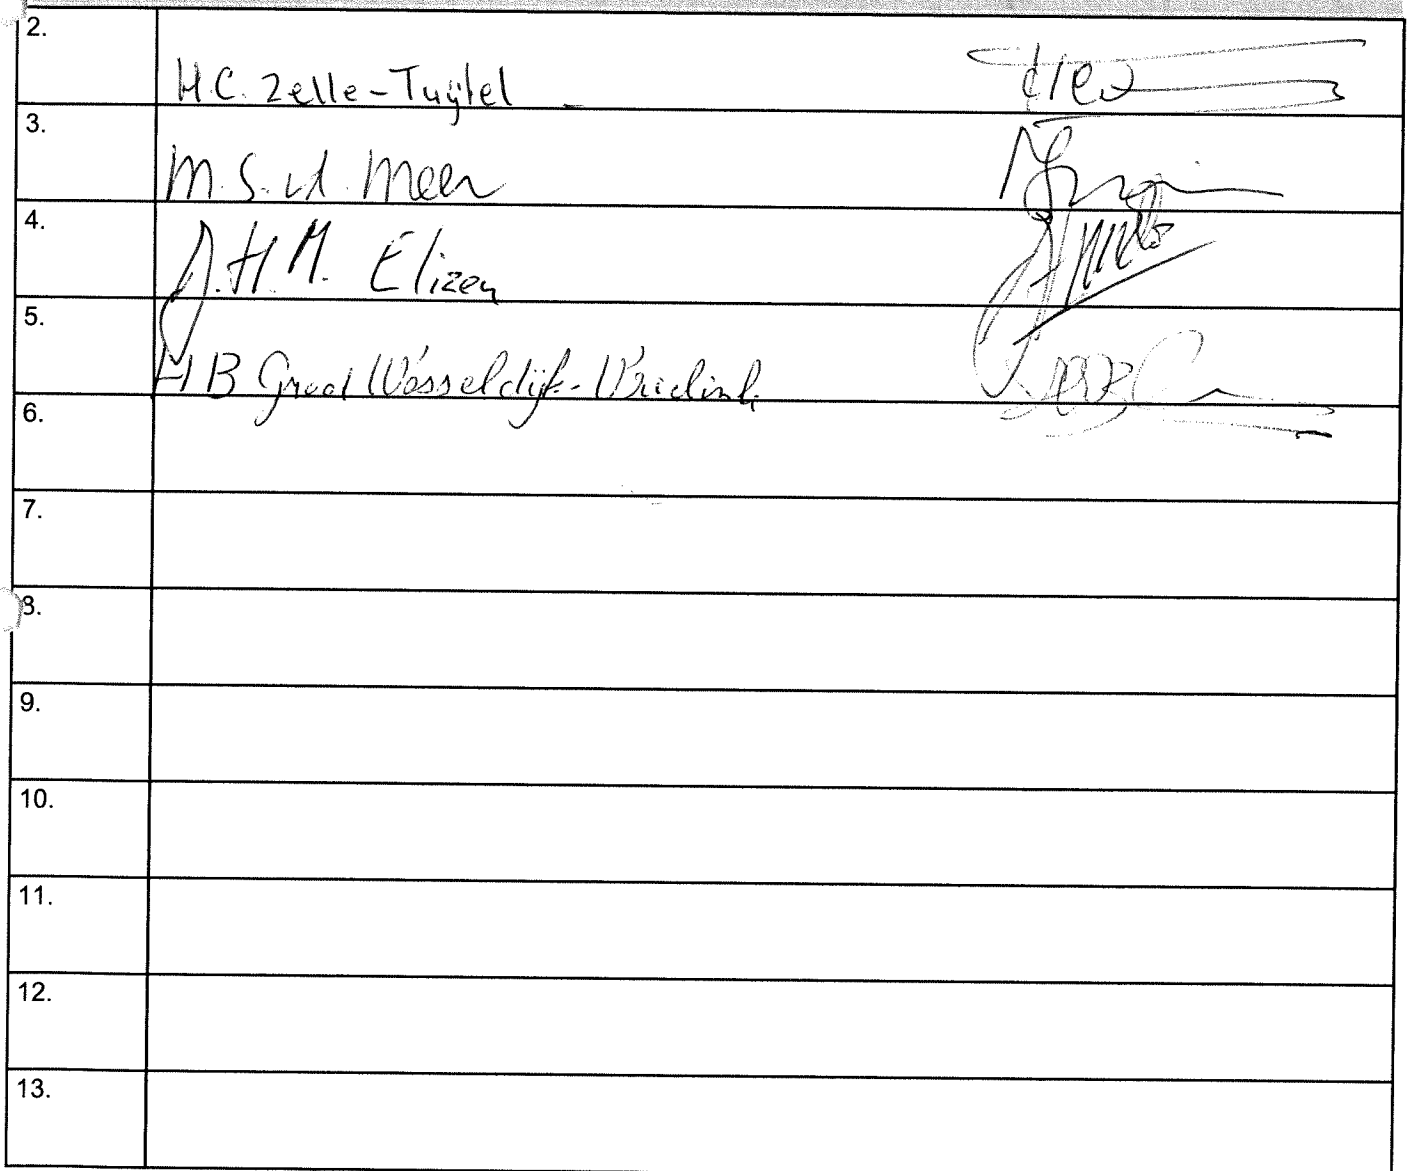 2. H.C. Zelle-Tuÿtel
3. M.S. vd. Meer
4. J.H.M. Elizen
5. HB Groot Wesseldijk-Vrielink
6.
7.
8.
9.
10.
11.
12.
13.